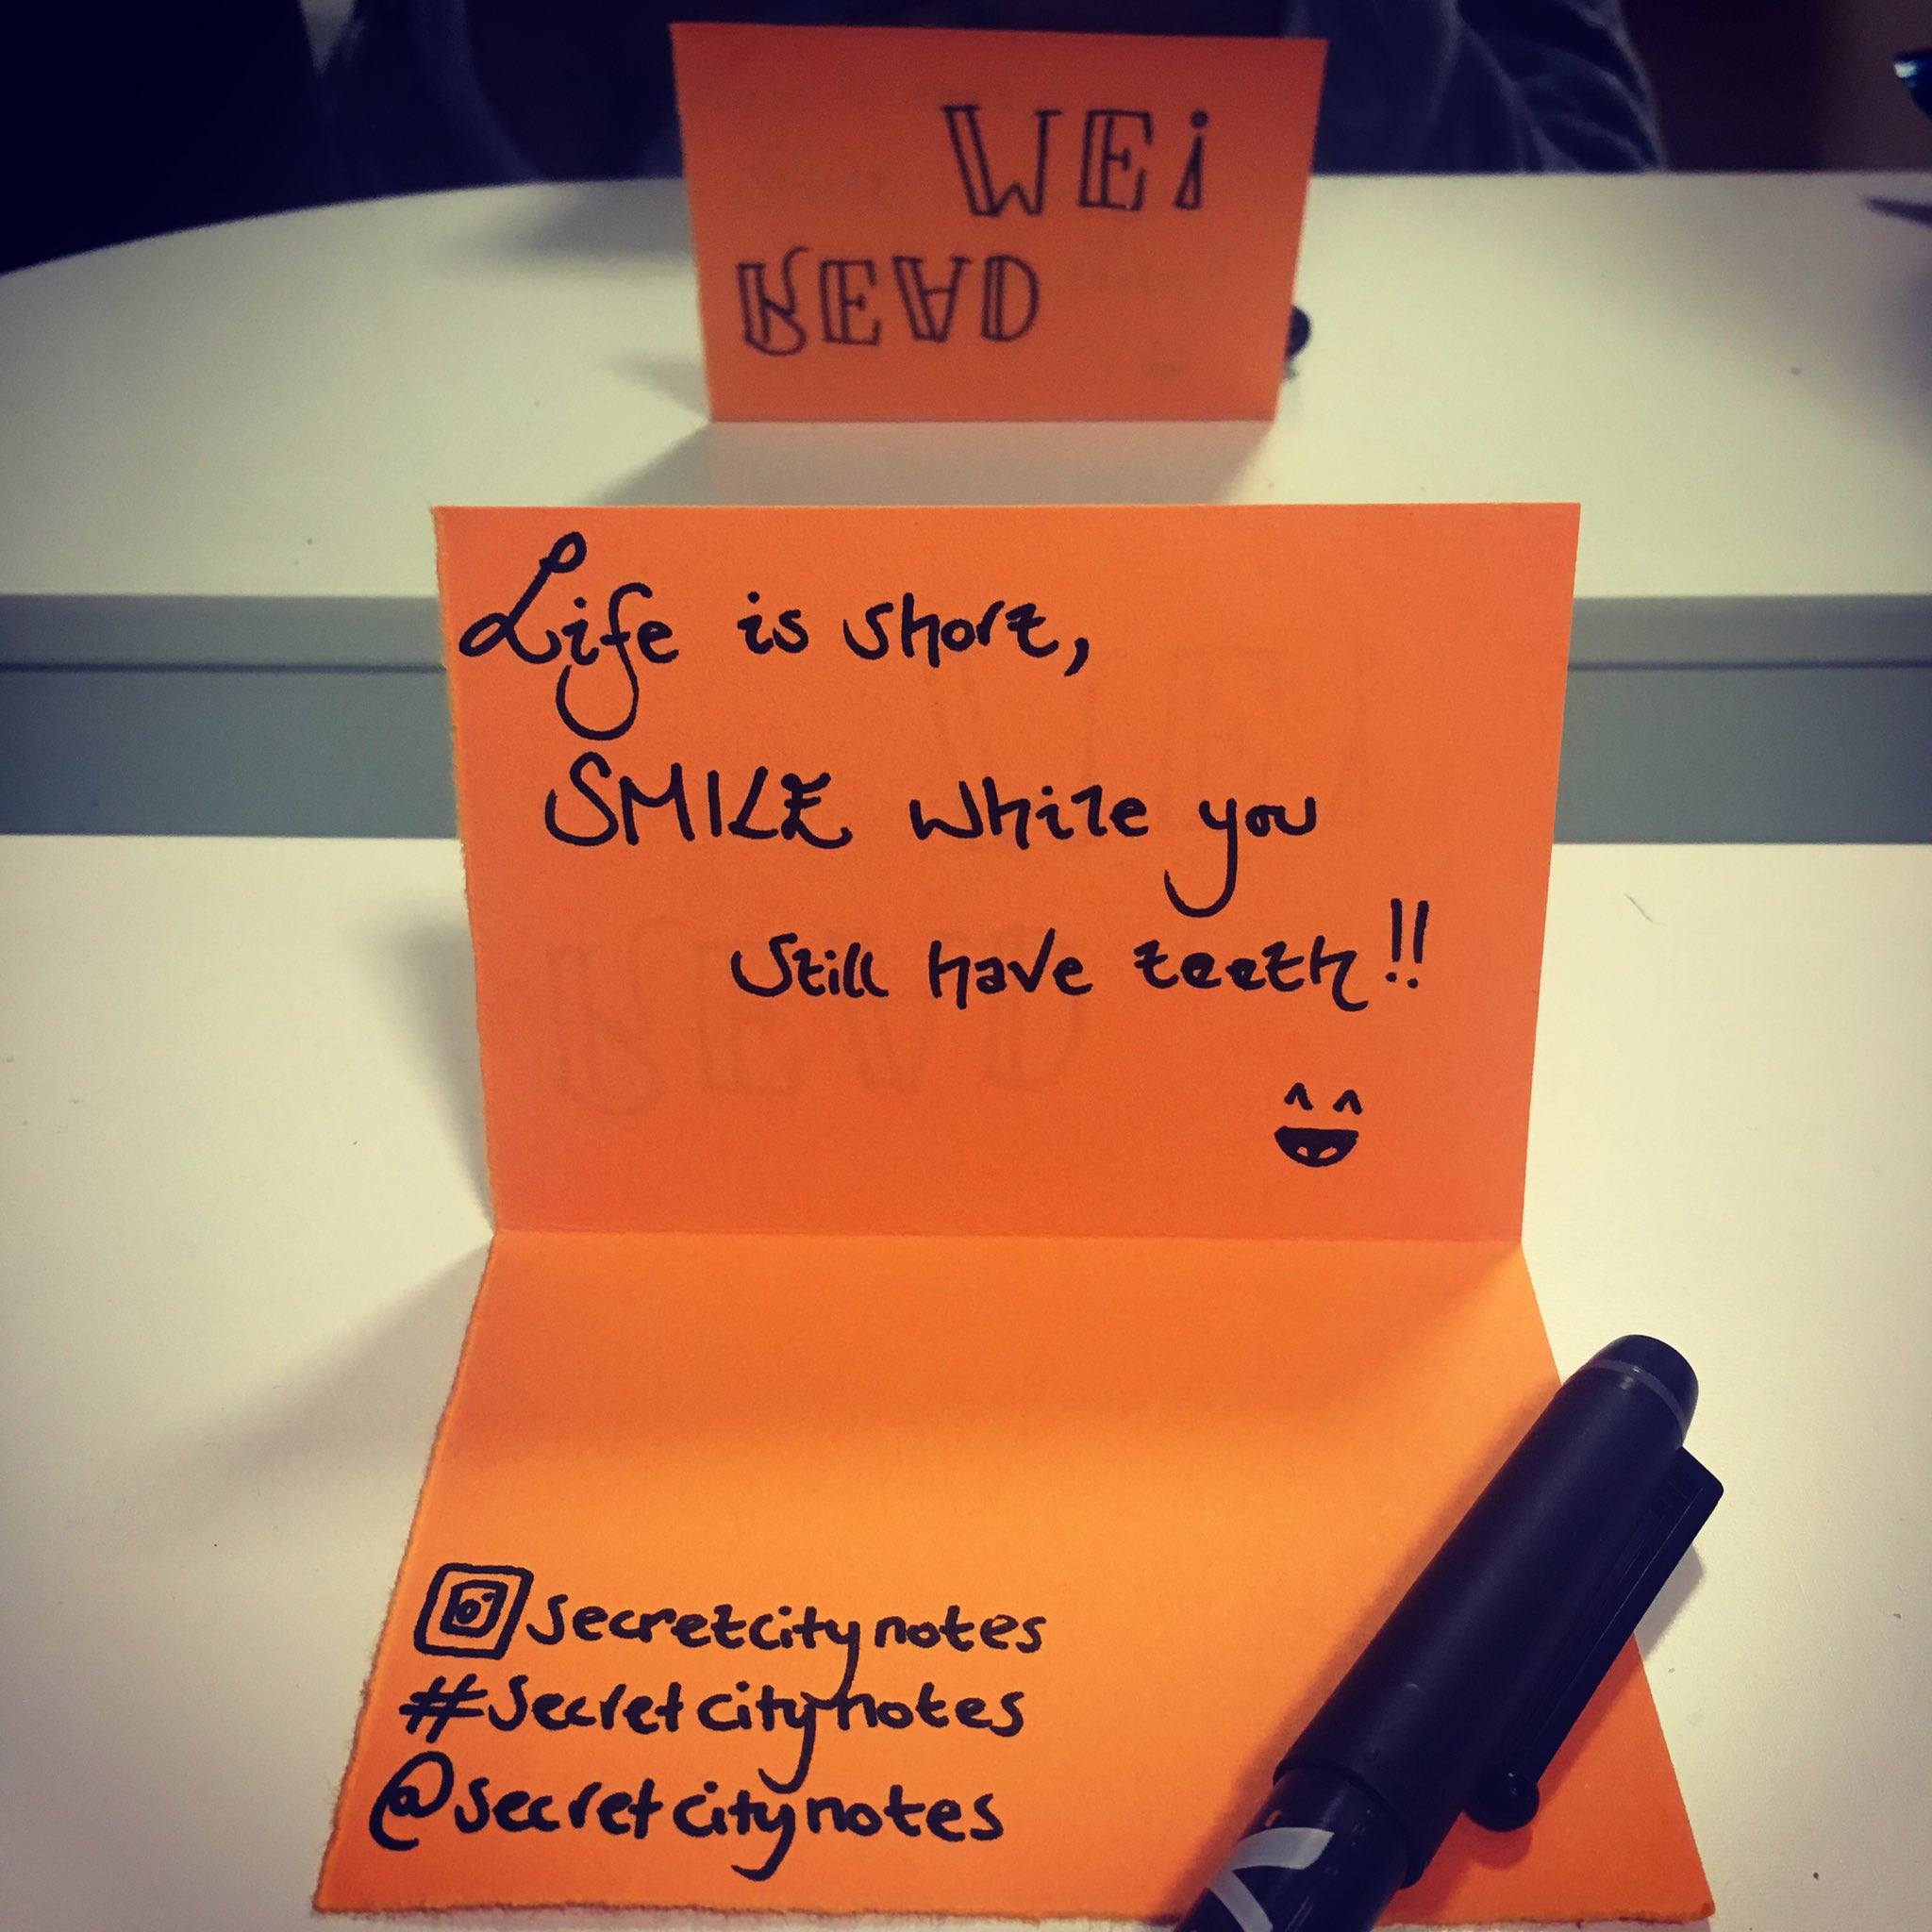 READ
ME!
Life is short,
SMILE while you
still have teeth!!
secretcitynotes
#secretcitynotes
@secretcitynotes